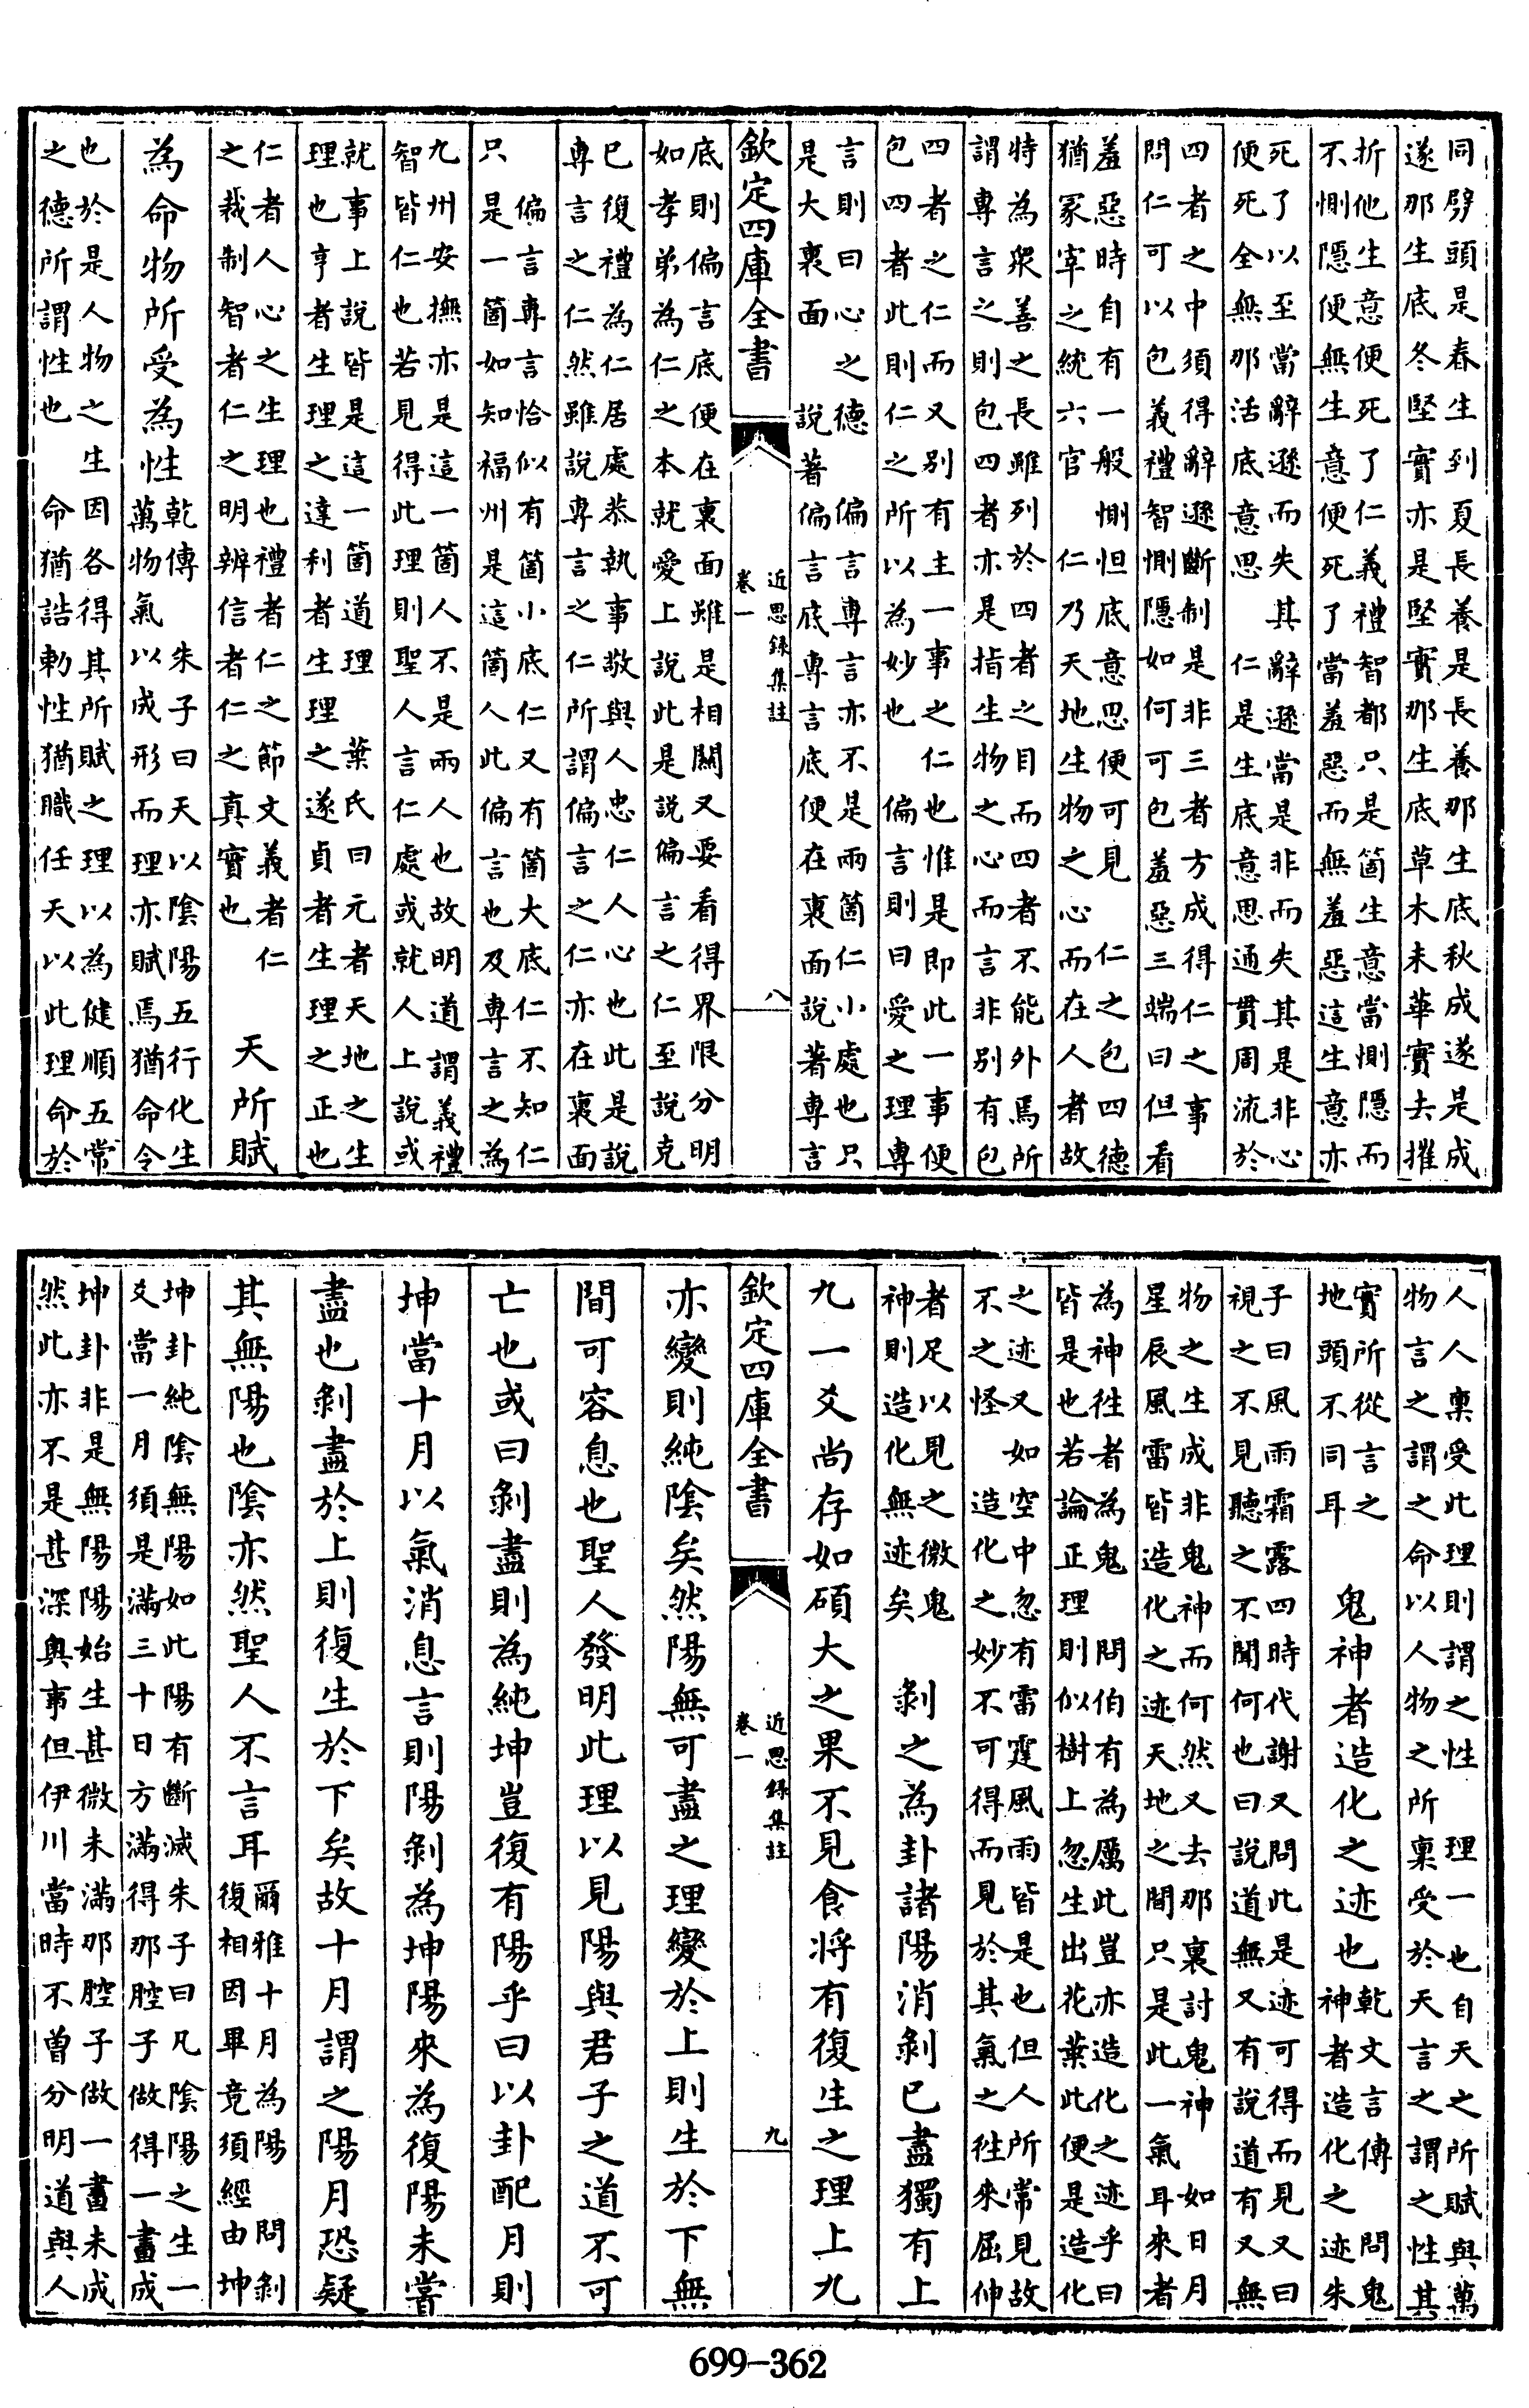 同劈頭是春生到夏長養是長養那生底秋成遂是成
遂那生底冬堅實亦是堅實那生底草木未華實去摧
折他生意便死了仁義禮智都只是箇生意當惻隱而
不惻隱便無生意便死了當羞惡而無羞惡這生意亦
死了以至當辭遜而失其辭遜當是非而失其是非心
便死全無那活底意思 仁是生底意思通貫周流於
四者之中須得辭遜斷制是非三者方成得仁之事
問仁可以包義禮智惻隱如何可包羞惡三端曰但看
羞惡時自有一般惻怛底意思便可見 仁之包四德
猶冢宰之統六官 仁乃天地生物之心而在人者故
特為衆善之長雖列於四者之目而四者不能外焉所
謂專言之則包四者亦是指生物之心而言非别有包
四者之仁而又别有主一事之仁也惟是即此一事便
包四者此則仁之所以為妙也 偏言則曰愛之理專
言則曰心之德 偏言專言亦不是兩箇仁小處也只
是大裏面 說著偏言底專言底便在裏面說著專言
欽定四庫全書
近思録集註
卷一
八
底則偏言底便在裏面雖是相關又要看得界限分明
如孝弟為仁之本就愛上說此是說偏言之仁至說克
已復禮為仁居處恭執事敬與人忠仁人心也此是說
專言之仁然雖說專言之仁所謂偏言之仁亦在裏面
偏言專言恰似有箇小底仁又有箇大底仁不知仁
只是一箇如知福州是這箇人此偏言也及專言之為
九州安撫亦是這一箇人不是兩人也故明道謂義禮
智皆仁也若見得此理則聖人言仁處或就人上說或
就事上說皆是這一箇道理 葉氏曰元者天地之生
理也亨者生理之達利者生理之遂貞者生理之正也
仁者人心之生理也禮者仁之節文義者仁
之裁制智者仁之明辨信者仁之真實也
天所賦
為命物所受為性
乾傳 朱子曰天以陰陽五行化生
萬物氣以成形而理亦賦焉猶命令
也於是人物之生因各得其所賦之理以為健順五常
之德所謂性也 命猶誥勅性猶職任天以此理命於
人人稟受此理則謂之性 理一也自天之所賦與萬
物言之謂之命以人物之所稟受於天言之謂之性其
實所從言之
地頭不同耳
鬼神者造化之迹也
乾文言傳 問鬼
神者造化之迹朱
子曰風雨霜露四時代謝又問此是迹可得而見又曰
視之不見聽之不聞何也曰說道無又有說道有又無
物之生成非鬼神而何然又去那裏討鬼神如日月
星辰風雷皆造化之迹天地之間只是此一氣耳來者
為神徃者為鬼 問伯有為厲此豈亦造化之迹乎曰
皆是也若論正理則似樹上忽生出花葉此便是造化
之迹又如空中忽有雷霆風雨皆是也但人所常見故
不之怪 造化之妙不可得而見於其氣之徃來屈伸
者足以見之微鬼
神則造化無迹矣
剝之為卦諸陽消剝已盡獨有上
九一爻尚存如碩大之果不見食将有復生之理上九
欽定四庫全書
近思録集註
卷一
九
亦變則純陰矣然陽無可盡之理變於上則生於下無
間可容息也聖人發明此理以見陽與君子之道不可
亡也或曰剝盡則為純坤豈復有陽乎曰以卦配月則
坤當十月以氣消息言則陽剝為坤陽來為復陽未嘗
盡也剝盡於上則復生於下矣故十月謂之陽月恐疑
其無陽也陰亦然聖人不言耳
爾雅十月為陽 問剝
復相因畢竟須經由坤
坤卦純陰無陽如此陽有斷滅朱子曰凡陰陽之生一
爻當一月須是滿三十日方滿得那腔子做得一畫成
坤卦非是無陽陽始生甚微未滿那腔子做一畫未成
然此亦不是甚深奥事但伊川當時不曽分明道與人
699-362